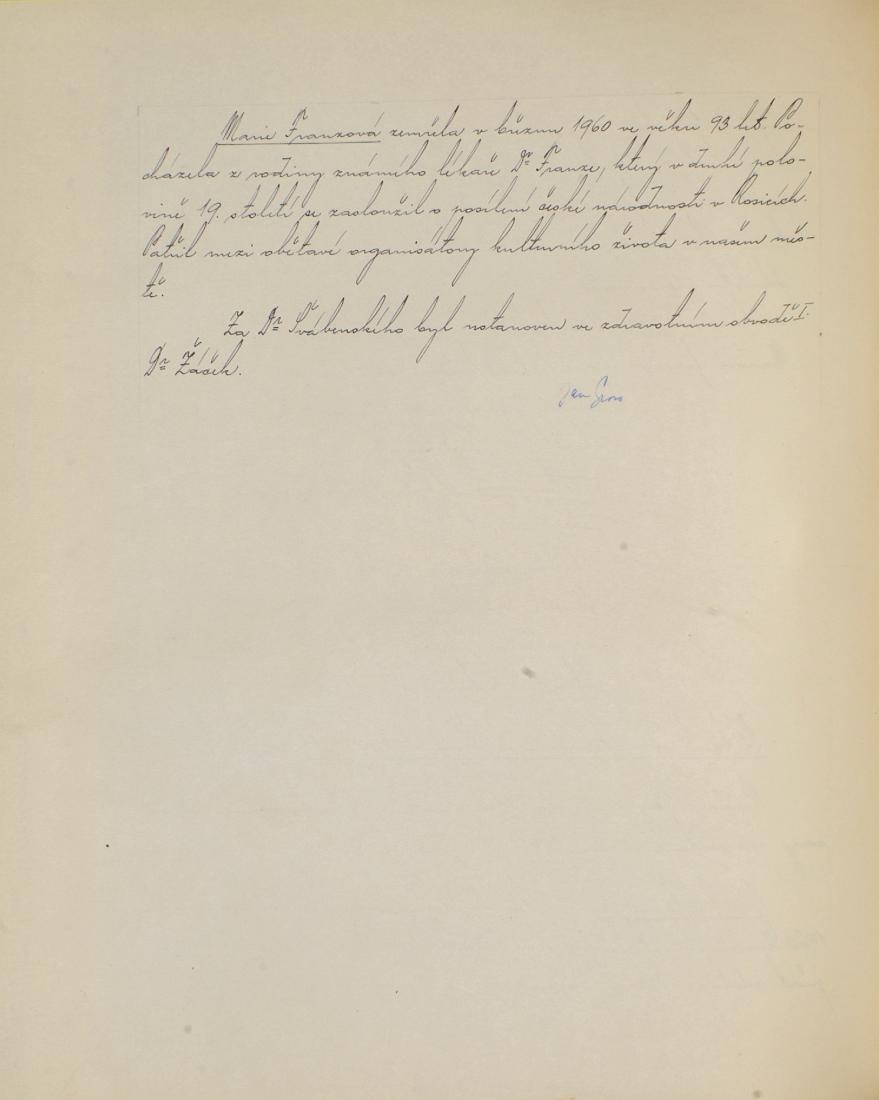 Marie Franzová zemřela v březnu 1960 ve věku 93 let. Po-
cházela z rodiny známého lékaře Dr Franze, který v druhé polo-
vině 19. století se zasloužil o posílení české národnosti v Rosicích.
Patřil mezi obětavé organisátory kulturního života v našem měs-
tě.
Za Dr Švábenského byl ustanoven ve zdravotním obvodě I.
Dr Žáček.
Jan